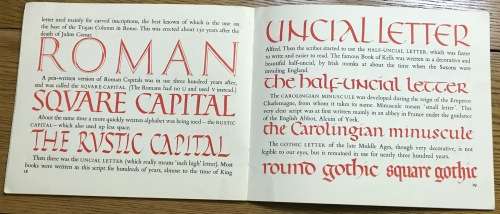 letter used mainly for carved inscriptions, the best known of which is the one on
the base of the Trajan Column in Rome. This was erected about 150 years after the
death of Julius Caesar.
ROMAN
A pen-written version of Roman Capitals was in use three hundred years after,
and was called the SQUARE CAPITAL. (The Romans had no U and used V instead.)
SQVARE CAPITAL
About the same time a more quickly written alphabet was being used – the RUSTIC
CAPITAL – which also used up less space.
THE RVSTIC CAPITAL
Then there was the UNCIAL LETTER (which really means 'inch high' letter). Most
books were written in this script for hundreds of years, almost to the time of King
18
UNCIAL LETTER
Alfred. Then the scribes started to use the HALF-UNCIAL LETTER, which was faster
to write and easier to read. The famous Book of Kells was written in a decorative and
beautiful half-uncial, by Irish monks at about the time when the Saxons were
invading England.
the half-uncial letter
The CAROLINGIAN MINUSCULE was developed during the reign of the Emperor
Charlemagne, from whom it takes its name. Minuscule means 'small letter'. This
very clear script was at first written mainly in an abbey in France under the guidance
of the English Abbot, Alcuin of York.
the Carolingian minuscule
The GOTHIC LETTER of the late Middle Ages, though very decorative, is not
legible to our eyes, but is remained in use for nearly three hundred years.
round gothic square gothic
19